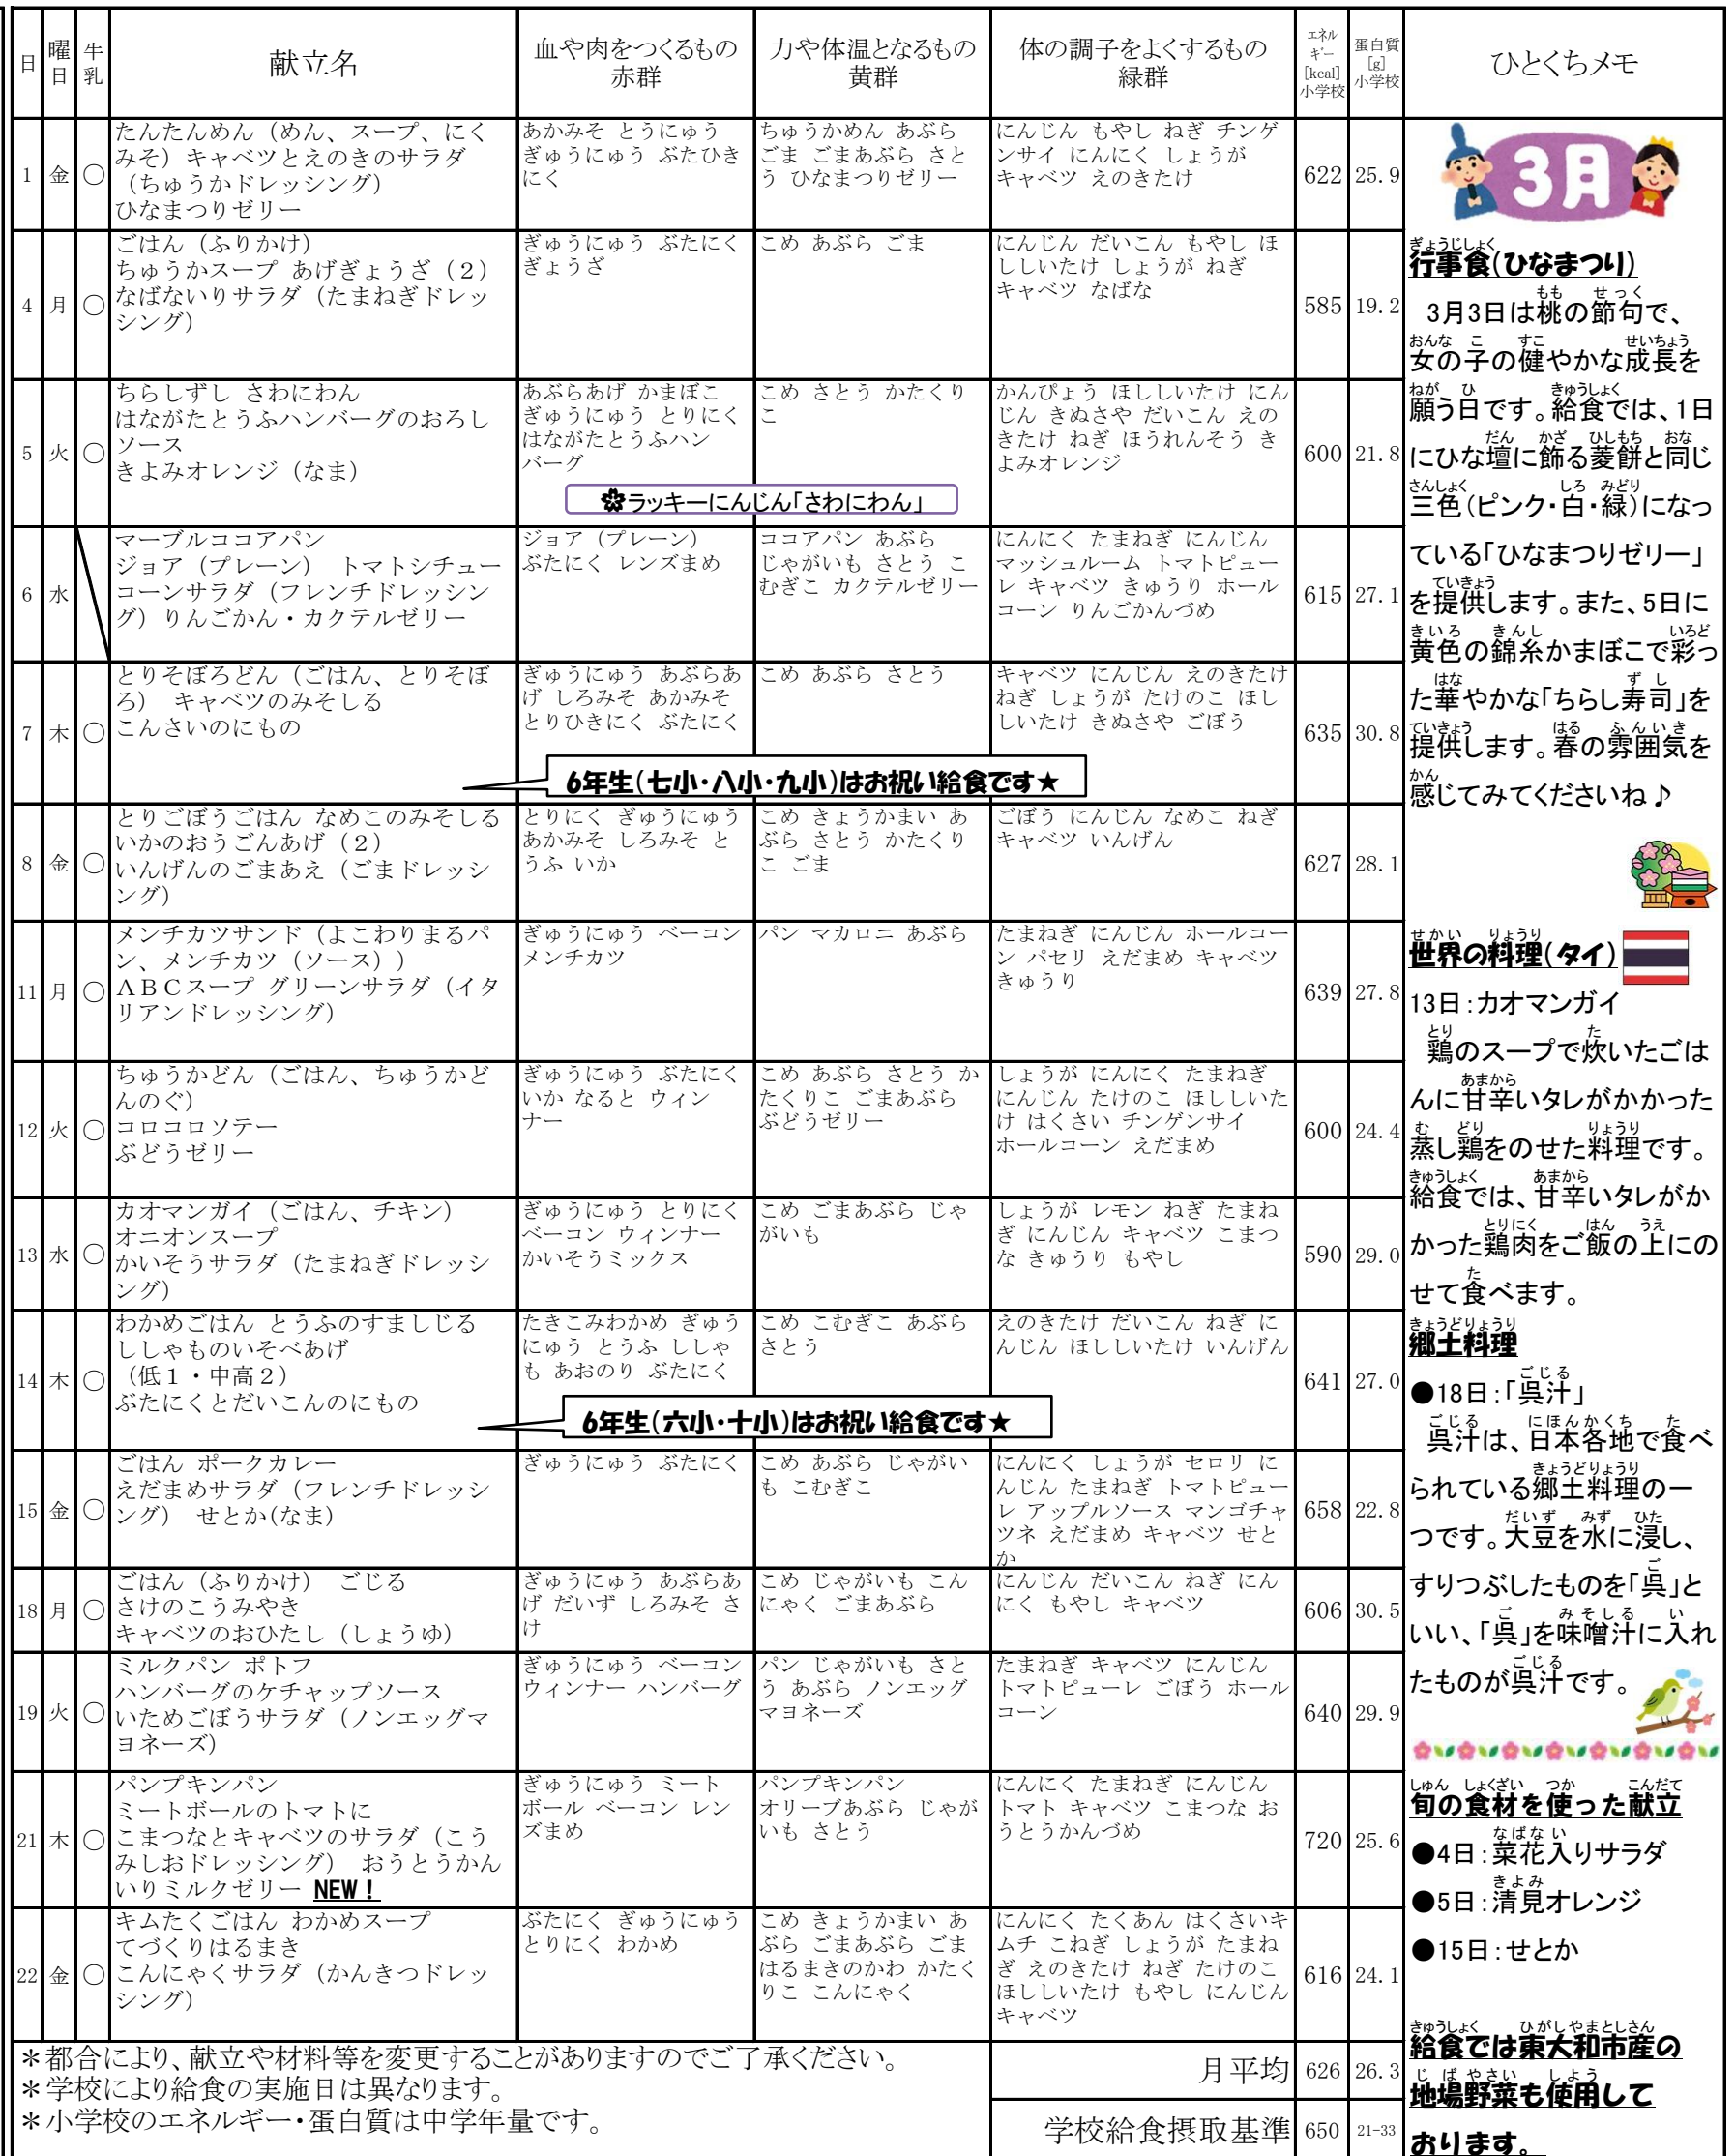 日 曜日 牛乳 献立名 血や肉をつくるもの 赤群 力や体温となるもの 黄群 体の調子をよくするもの 緑群 エネルギー [kcal] 小学校 蛋白質 [g] 小学校 ひとくちメモ
1 金 ○
たんたんめん（めん、スープ、にく
みそ）キャベツとえのきのサラダ
（ちゅうかドレッシング）
ひなまつりゼリー
あかみそ とうにゅう
ぎゅうにゅう ぶたひき
にく
ちゅうかめん あぶら
ごま ごまあぶら さと
う ひなまつりゼリー
にんじん もやし ねぎ チンゲ
ンサイ にんにく しょうが
キャベツ えのきたけ
622 25.9
4 月 ○
ごはん（ふりかけ）
ちゅうかスープ あげぎょうざ（２）
なばないりサラダ（たまねぎドレッ
シング）
ぎゅうにゅう ぶたにく
ぎょうざ
こめ あぶら ごま
にんじん だいこん もやし ほ
ししいたけ しょうが ねぎ
キャベツ なばな
585 19.2
5 火 ○
ちらしずし さわにわん
はながたとうふハンバーグのおろし
ソース
きよみオレンジ（なま）
あぶらあげ かまぼこ
ぎゅうにゅう とりにく
はながたとうふハン
バーグ
こめ さとう かたくり
こ
かんぴょう ほししいたけ にん
じん きぬさや だいこん えの
きたけ ねぎ ほうれんそう き
よみオレンジ
600 21.8
ラッキーにんじん「さわにわん」
6 水
マーブルココアパン
ジョア（プレーン） トマトシチュー
コーンサラダ（フレンチドレッシン
グ）りんごかん・カクテルゼリー
ジョア（プレーン）
ぶたにく レンズまめ
ココアパン あぶら
じゃがいも さとう こ
むぎこ カクテルゼリー
にんにく たまねぎ にんじん
マッシュルーム トマトピュー
レ キャベツ きゅうり ホール
コーン りんごかんづめ
615 27.1
7 木 ○
とりそぼろどん（ごはん、とりそぼ
ろ） キャベツのみそしる
こんさいのにもの
ぎゅうにゅう あぶらあ
げ しろみそ あかみそ
とりひきにく ぶたにく
こめ あぶら さとう
キャベツ にんじん えのきたけ
ねぎ しょうが たけのこ ほし
しいたけ きぬさや ごぼう
635 30.8
6年生（七小・八小・九小）はお祝い給食です★
8 金 ○
とりごぼうごはん なめこのみそしる
いかのおうごんあげ（２）
いんげんのごまあえ（ごまドレッシ
ング）
とりにく ぎゅうにゅう
あかみそ しろみそ と
うふ いか
こめ きょうかまい あ
ぶら さとう かたくり
こ ごま
ごぼう にんじん なめこ ねぎ
キャベツ いんげん
627 28.1
11 月 ○
メンチカツサンド（よこわりまるパ
ン、メンチカツ（ソース））
ＡＢＣスープ グリーンサラダ（イタ
リアンドレッシング）
ぎゅうにゅう ベーコン
メンチカツ
パン マカロニ あぶら
たまねぎ にんじん ホールコー
ン パセリ えだまめ キャベツ
きゅうり
639 27.8
12 火 ○
ちゅうかどん（ごはん、ちゅうかど
んのぐ）
コロコロソテー
ぶどうゼリー
ぎゅうにゅう ぶたにく
いか なると ウィン
ナー
こめ あぶら さとう か
たくりこ ごまあぶら
ぶどうゼリー
しょうが にんにく たまねぎ
にんじん たけのこ ほししいた
け はくさい チンゲンサイ
ホールコーン えだまめ
600 24.4
13 水 ○
カオマンガイ（ごはん、チキン）
オニオンスープ
かいそうサラダ（たまねぎドレッシ
ング）
ぎゅうにゅう とりにく
ベーコン ウィンナー
かいそうミックス
こめ ごまあぶら じゃ
がいも
しょうが レモン ねぎ たまね
ぎ にんじん キャベツ こまつ
な きゅうり もやし
590 29.0
14 木 ○
わかめごはん とうふのすましじる
ししゃものいそべあげ
（低１・中高２）
ぶたにくとだいこんのにもの
たきこみわかめ ぎゅう
にゅう とうふ ししゃ
も あおのり ぶたにく
こめ こむぎこ あぶら
さとう
えのきたけ だいこん ねぎ に
んじん ほししいたけ いんげん
641 27.0
6年生（六小・十小）はお祝い給食です★
15 金 ○
ごはん ポークカレー
えだまめサラダ（フレンチドレッシ
ング） せとか(なま）
ぎゅうにゅう ぶたにく
こめ あぶら じゃがい
も こむぎこ
にんにく しょうが セロリ に
んじん たまねぎ トマトピュー
レ アップルソース マンゴチャ
ツネ えだまめ キャベツ せと
か
658 22.8
18 月 ○
ごはん（ふりかけ） ごじる
さけのこうみやき
キャベツのおひたし（しょうゆ）
ぎゅうにゅう あぶらあ
げ だいず しろみそ さ
け
こめ じゃがいも こん
にゃく ごまあぶら
にんじん だいこん ねぎ にん
にく もやし キャベツ
606 30.5
19 火 ○
ミルクパン ポトフ
ハンバーグのケチャップソース
いためごぼうサラダ（ノンエッグマ
ヨネーズ）
ぎゅうにゅう ベーコン
ウィンナー ハンバーグ
パン じゃがいも さと
う あぶら ノンエッグ
マヨネーズ
たまねぎ キャベツ にんじん
トマトピューレ ごぼう ホール
コーン
640 29.9
21 木 ○
パンプキンパン
ミートボールのトマトに
こまつなとキャベツのサラダ（こう
みしおドレッシング） おうとうかん
いりミルクゼリー NEW！
ぎゅうにゅう ミート
ボール ベーコン レン
ズまめ
パンプキンパン
オリーブあぶら じゃが
いも さとう
にんにく たまねぎ にんじん
トマト キャベツ こまつな お
うとうかんづめ
720 25.6
22 金 ○
キムたくごはん わかめスープ
てづくりはるまき
こんにゃくサラダ（かんきつドレッ
シング）
ぶたにく ぎゅうにゅう
とりにく わかめ
こめ きょうかまい あ
ぶら ごまあぶら ごま
はるまきのかわ かたく
りこ こんにゃく
にんにく たくあん はくさいキ
ムチ こねぎ しょうが たまね
ぎ えのきたけ ねぎ たけのこ
ほししいたけ もやし にんじん
キャベツ
616 24.1
＊都合により、献立や材料等を変更することがありますのでご了承ください。
＊学校により給食の実施日は異なります。
＊小学校のエネルギー・蛋白質は中学年量です。
月平均 626 26.3
学校給食摂取基準 650 21-33
3月
ぎょうじしょく
行事食（ひなまつり）
もも せっく
3月3日は桃の節句で、
おんな こ すこ せいちょう
女の子の健やかな成長を
ねが ひ きゅうしょく
願う日です。給食では、1日
だん かざ ひしもち おな
にひな壇に飾る菱餅と同じ
さんしょく しろ みどり
三色（ピンク・白・緑）になっ
ている「ひなまつりゼリー」
ていきょう
を提供します。また、5日に
きいろ きんし いろど
黄色の錦糸かまぼこで彩っ
はな ずし
た華やかな「ちらし寿司」を
ていきょう はる ふんいき
提供します。春の雰囲気を
かん
感じてみてくださいね♪
せかい りょうり
世界の料理（タイ）
13日：カオマンガイ
とり た
鶏のスープで炊いたごは
あまから
んに甘辛いタレがかかった
む どり りょうり
蒸し鶏をのせた料理です。
きゅうしょく あまから
給食では、甘辛いタレがか
とりにく はん うえ
かった鶏肉をご飯の上にの
た
せて食べます。
きょうどりょうり
郷土料理
ごじる
●18日：「呉汁」
ごじる にほんかくち た
呉汁は、日本各地で食べ
きょうどりょうり
られている郷土料理の一
だいず みず ひた
つです。大豆を水に浸し、
ご
すりつぶしたものを「呉」と
ご みそしる い
いい、「呉」を味噌汁に入れ
ごじる
たものが呉汁です。
しゅん しょくざい つか こんだて
旬の食材を使った献立
なばない
●4日：菜花入りサラダ
きよみ
●5日：清見オレンジ
●15日：せとか
きゅうしょく ひがしやまとしさん
給食では東大和市産の
じばやさい しよう
地場野菜も使用して
おります。